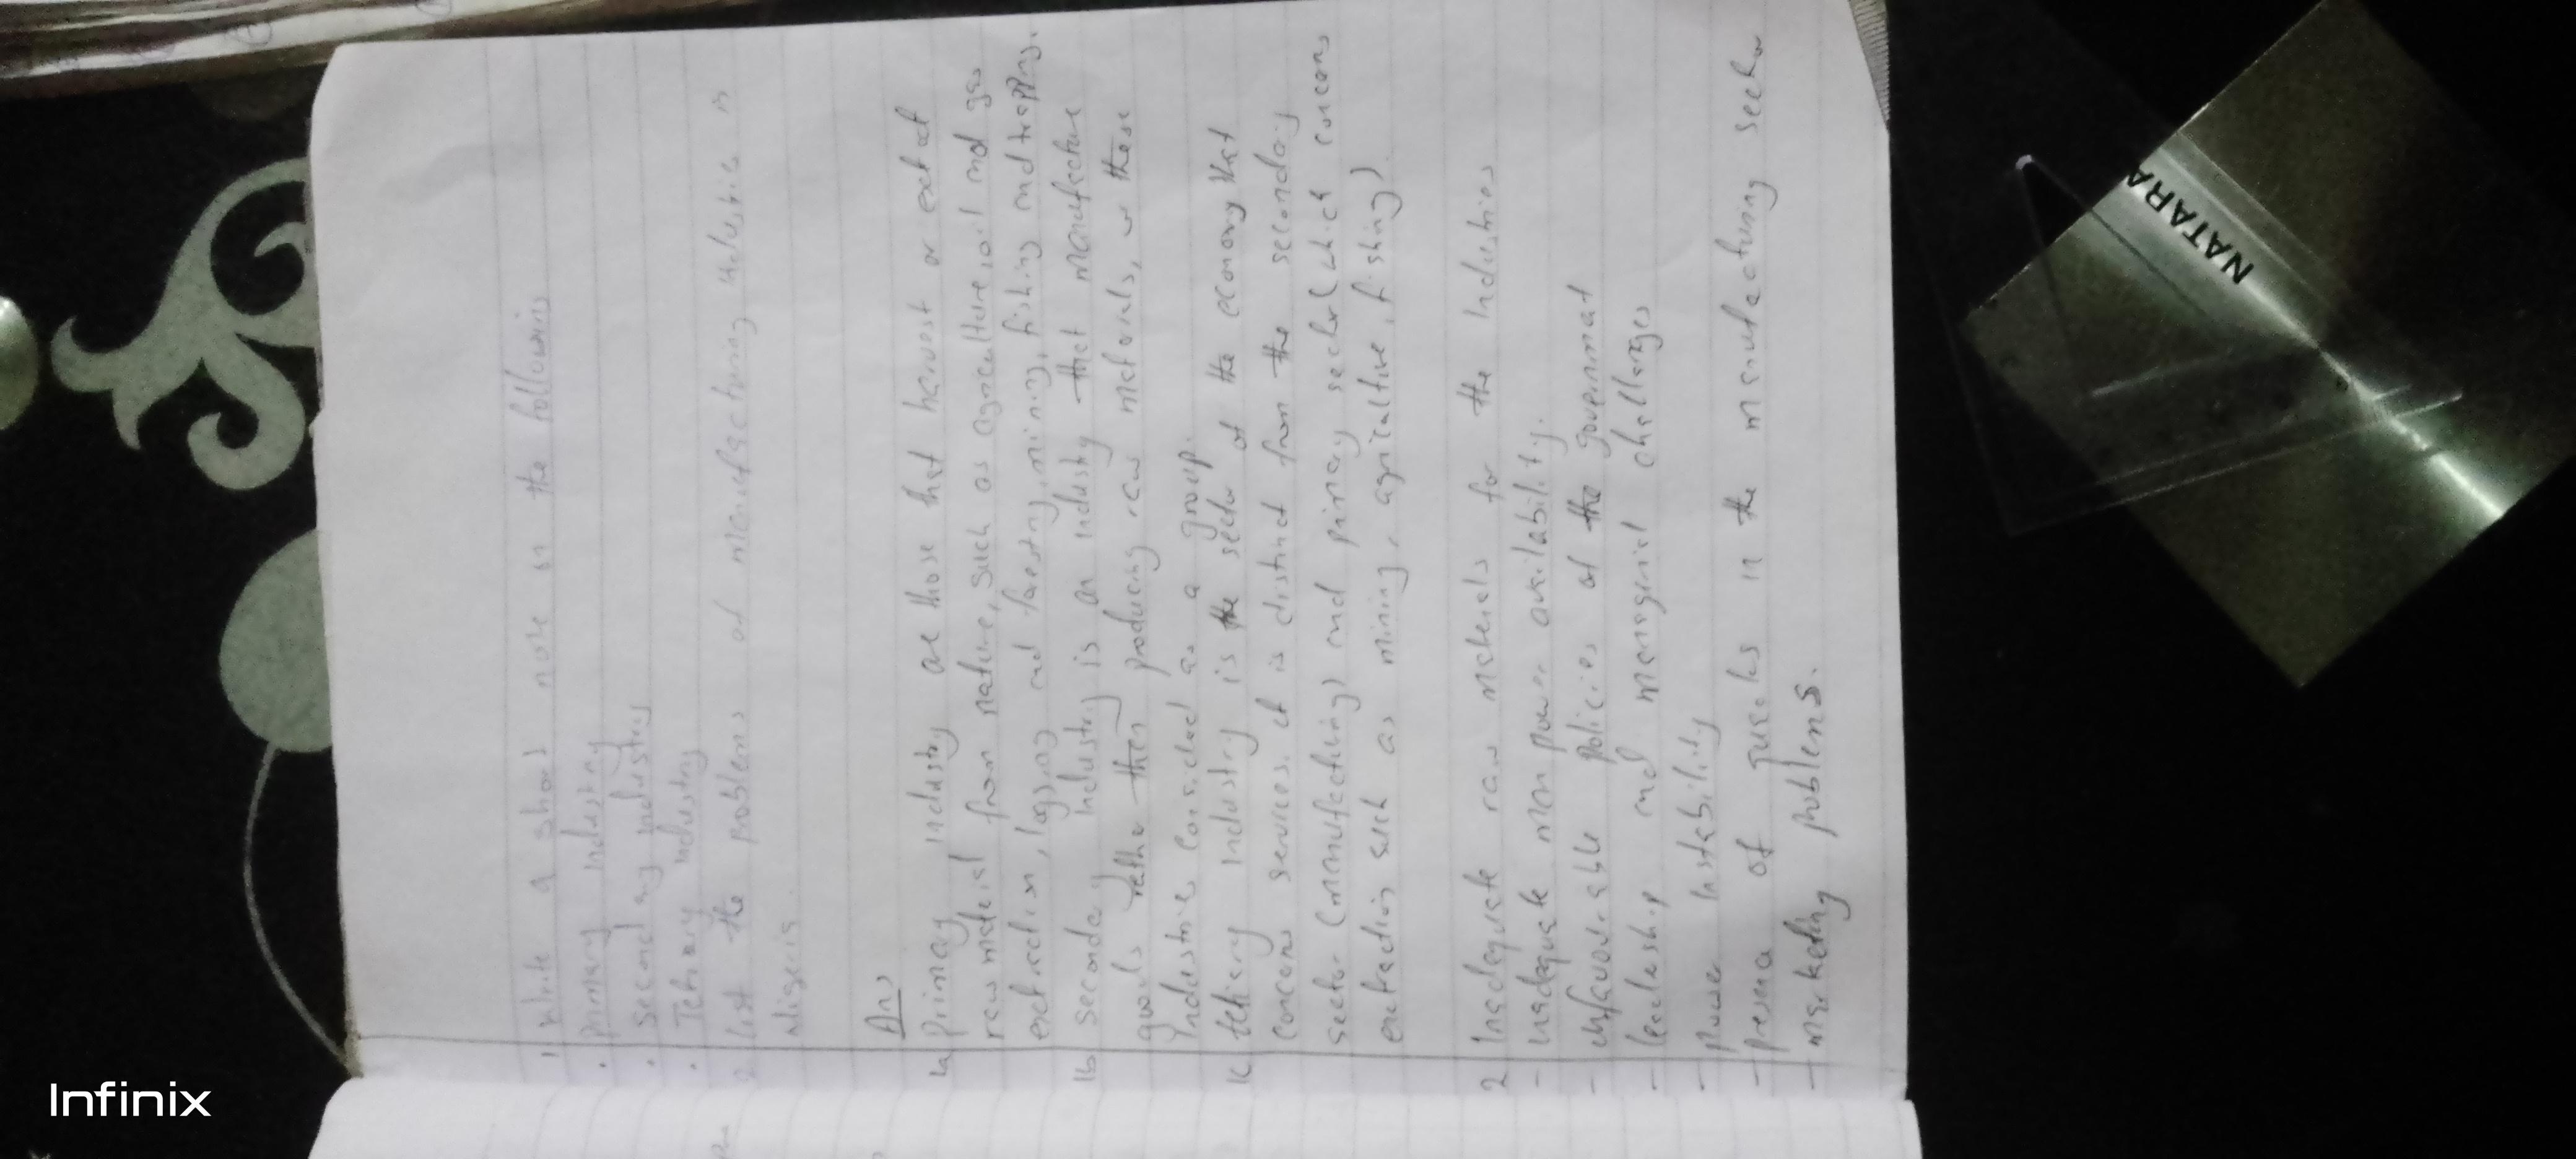 1 Write a short note on the following
. Primary industry
. Secondary industry
. Tetiary industry
2 list the problems of manufacturing industries in
Nigeria.
Ans
1a Primary industry are those that harvest or extract
raw material from nature, such as agriculture, oil and gas
extraction, logging and forestry, mining, fishing and trapping.
1b Secondary industry is an industry that manufacture
goods rather than producing raw materials, or these
industries considered as a group.
1c tetiary industry is the sector of the economy that
concerns services. it is distinct from the secondary
sector (manufacturing) and primary sector (which concerns
extraction such as mining, agriculture, fishing)
2 Inadequate raw materials for the Industries
- Inadequate man power availability.
- unfavourable policies of the government
- leadership and managerial challenges
- power instability
- of quacks in the manufacturing sector
- marketing problems.
Infinix
NATARA